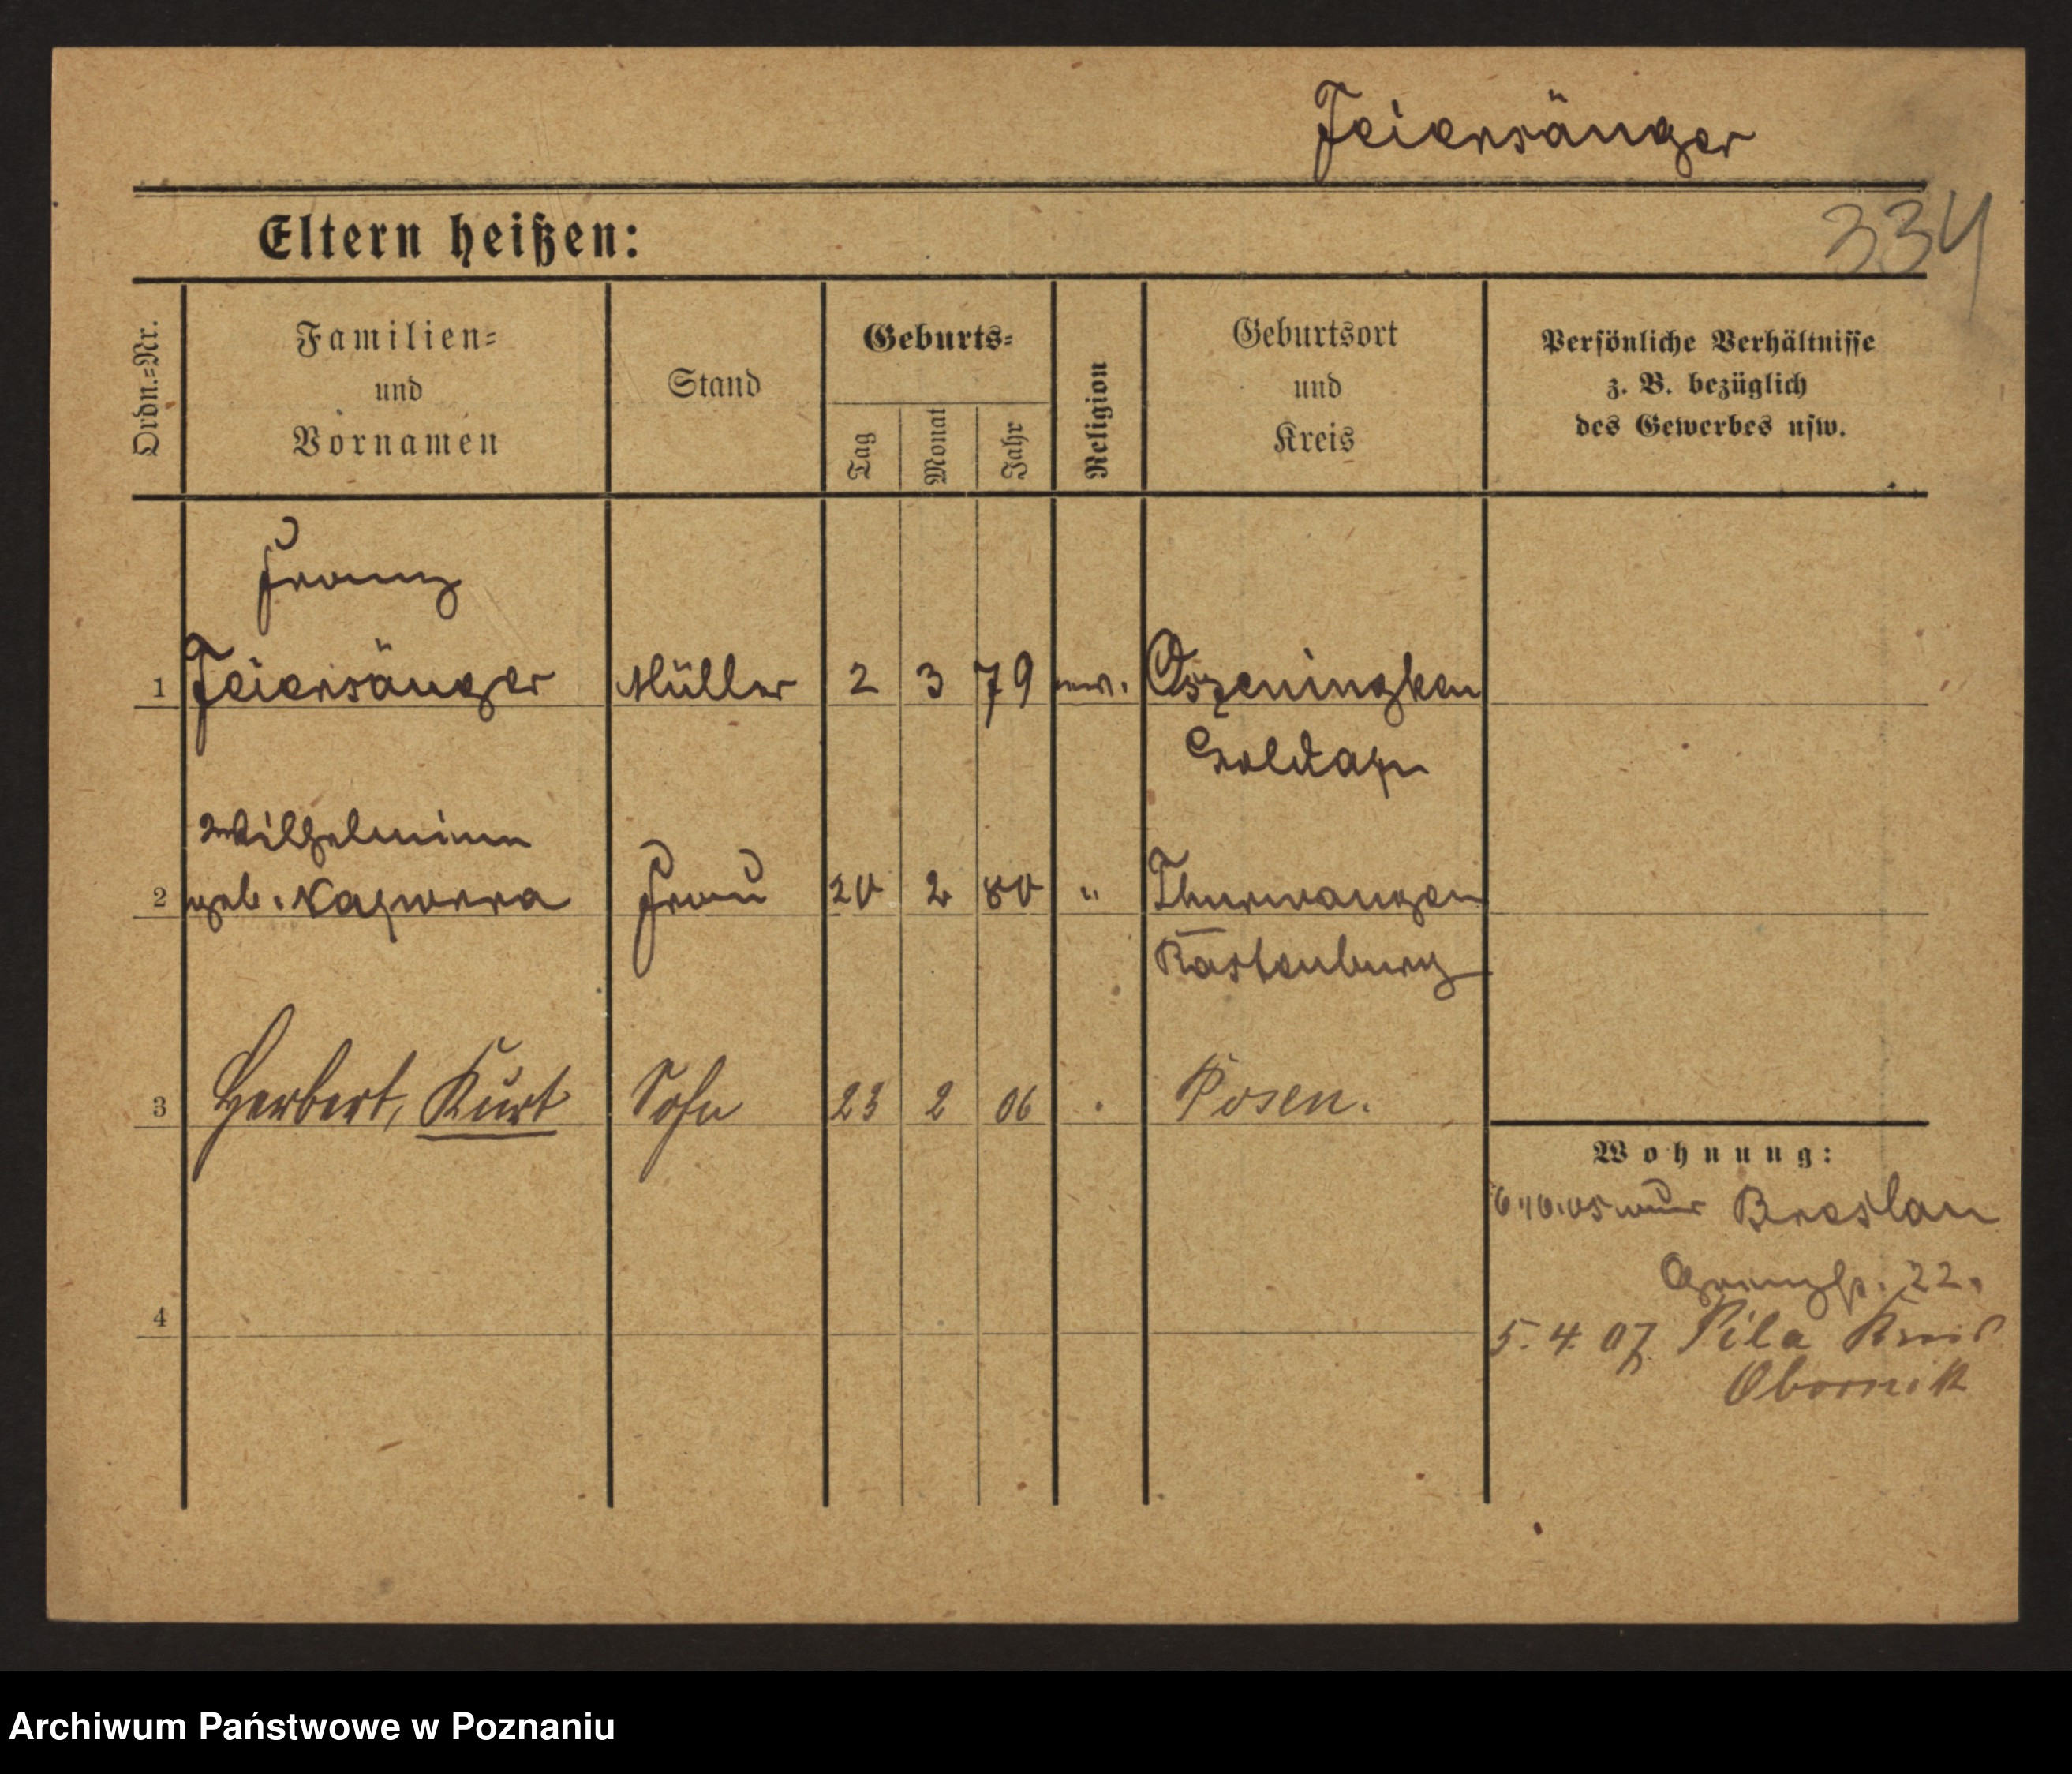 Feiersänger
334
Eltern heißen:
Ordn.=Nr.
Familien=
und
Vornamen
Stand
Geburts=
Tag
Monat
Jahr
Religion
Geburtsort
und
Kreis
Persönliche Verhältnisse
z. B. bezüglich
des Gewerbes usw.
Franz
1 Feiersänger Müller 2 3 79 Oszeningken
Goldap
Wilhelmine
2 geb. Kapwera Frau 20 2 80 " Thurwangen
Rastenburg
3 Herbert, Kurt Sohn 23 2 06 . Posen.
Wohnung:
Breslau
22.
4
5. 4. 07. Pila Kreis
Obornik
Archiwum Państwowe w Poznaniu